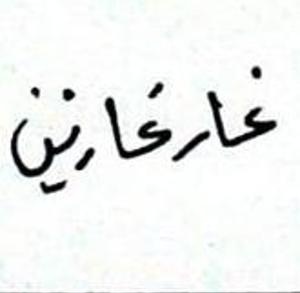 غار غارتين